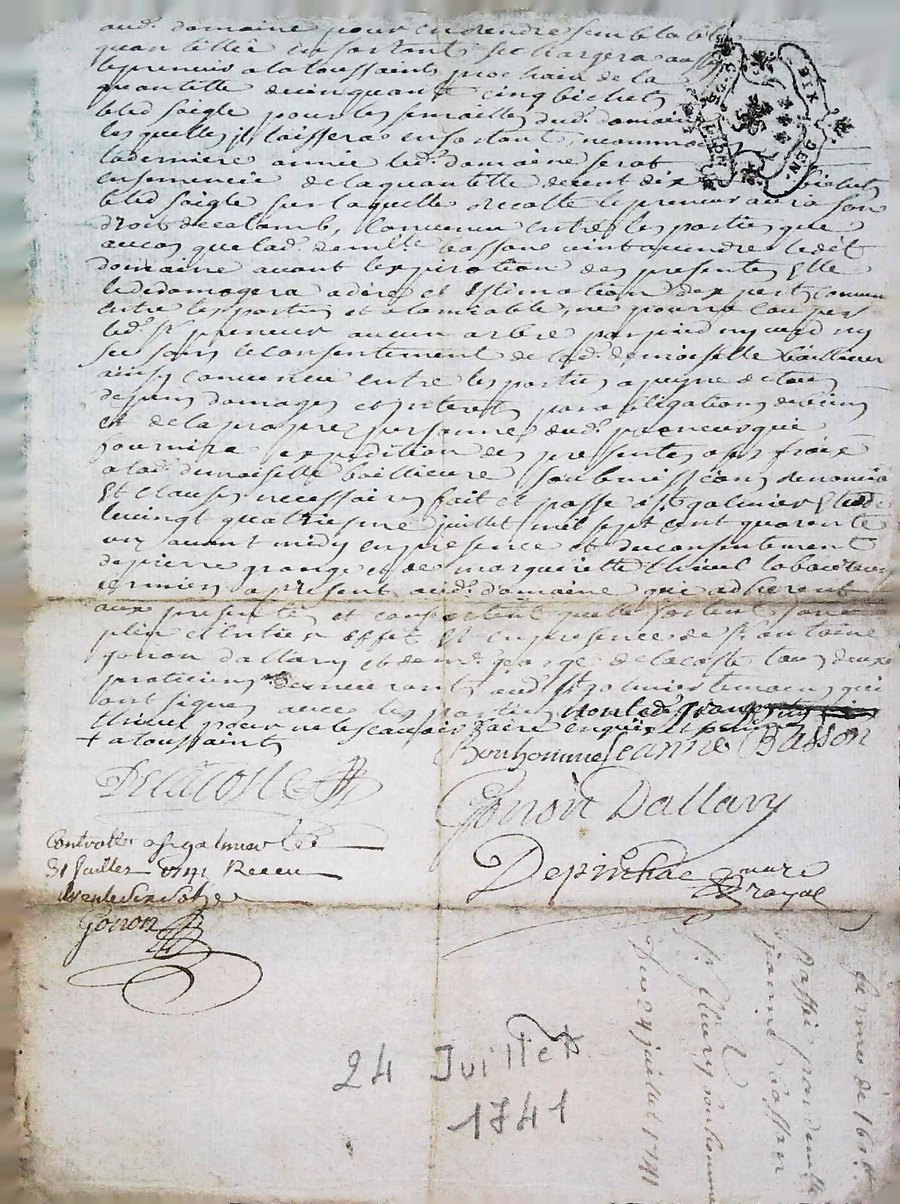 aud. domaine pour en prendre sur la
quantitée en sortant se chargera aussy
le preneur a la toussaints prochain de la
quantitté de cinquante cinq bichets
bled saigle pour les semailles dud. domaine
lesquelles il laissera en sortant,
la derniere année led. domaine serat
ensemencée de la quantitté de cent dix bichets
bled saigle sur laquelle recolte le preneur aura son
droit de colamb, convenu entre les parties que
au cas que lad. demlle Basson vint a vendre ledit
domaine avant l'expiration des presentes elle
le dedomagera a dire et estimation d'expert convenu
entre les parties et a lamiable, ne pourra couper
led. sr preneur aucun arbre par pied ny
sec sans le consentement de lad. demoiselle bailleure
ainsy convenu entre les parties a peyne de tous
depens domages et interets par obligations de biens
et de la propre personne dud. preneur qui
fournira expedition des presentes a ses fraix
a lad. demoiselle bailleure soubmissions
et clauses necessaires fait et passé a st galmier Etude
le vingt quatriesme juillet mil sept cent quarente
un avant midy en presence et du consentement
de pierre grange et de margueritte thieul laboureurs
a present aud. domaine qui adherent
aux presentes et consentent quelles sortent leur
plein et entier effet et en presence de sr antoine
gonon dallary et de me george delacoste tous deux
praticiens demeurants aud. st galmier temoins qui
ont signés avec les parties non led. grange
thieul pour ne le scavoir faire enquis et
+ a toussaints
Bonhomme Jeanne Basson
Delacoste
Gonon Dallary
Controllé a st galmier le
31 Juillet 1741 Receu
douze sols
Depinhac
royal
Gonon
24 Juillet
1741
ferme de
Passée par demlle
jeanne Basson
a
sr fleury bonhomme
Du 24 juillet 1741
DIX
DEN.